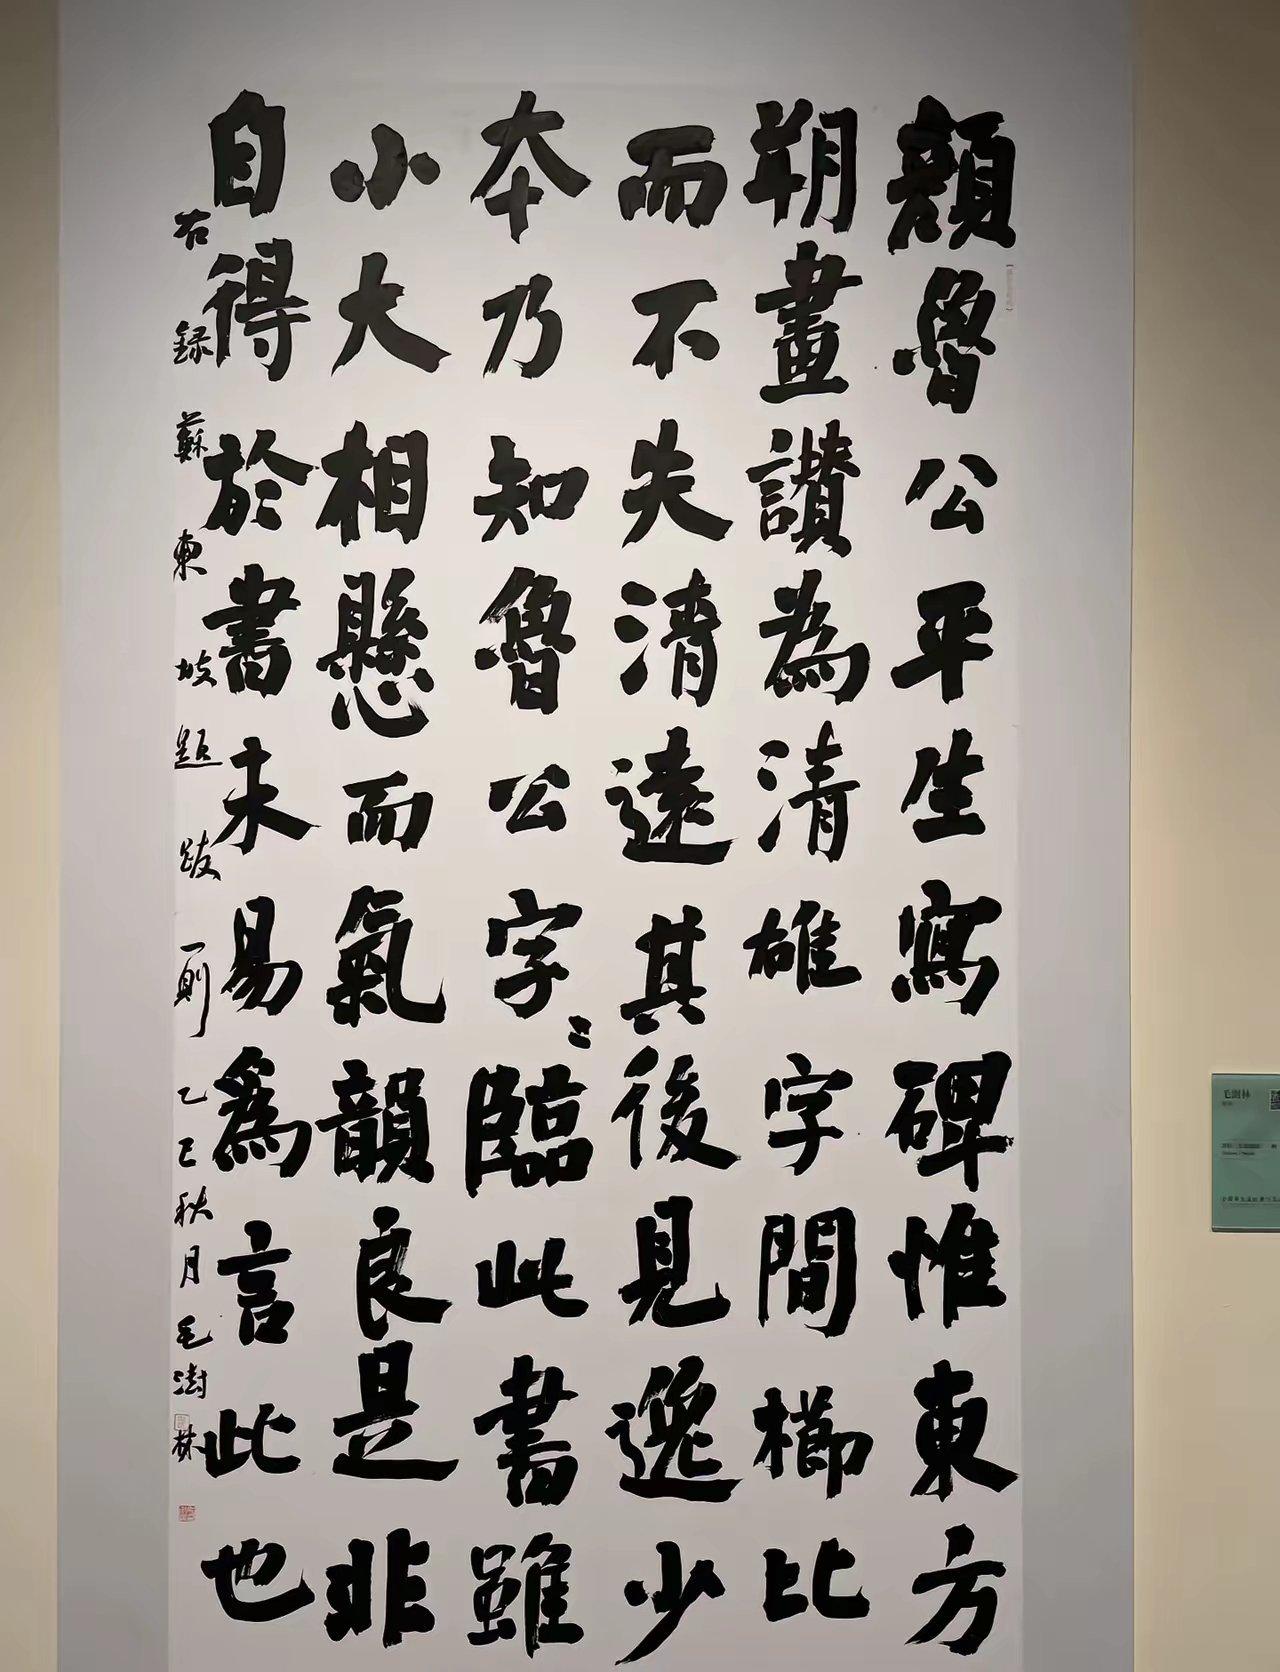 顏魯公平生寫碑惟東方
朔畫讚為清雄字間櫛比
而不失清遠其後見逸少
夲乃知魯公字〻臨此書雖
小大相懸而氣韻良是非
自得於書未易為言此也
右録蘇東坡題跋一則乙巳秋月毛澍林
毛澍林